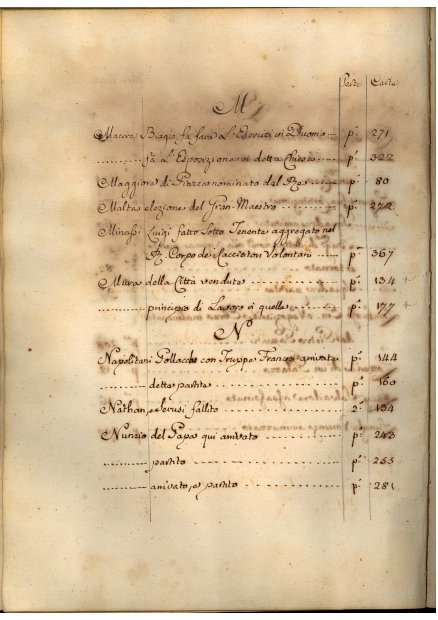 Parte Carte
M
Macera Biagio fa fare L'Esercizi in Duomo p.ª 271
fà L'Esposizione in detta Chiesa p.ª 322
Maggiore di Piazza nominato dal p.ª 80
Malta elezione del Gran-Maestro p.ª 272
Luigi fatto Sotto Tenente aggregato nel
Corpo de Cacciatori Volontari p.ª 367
Mura della Città vendute p.ª 134 +
principio di Lavoro in quelle p.ª 177 +
N
Napolitani Pollacche con Truppe Francesi arrivate p.ª 144
dette partite p.ª 160
Nathan fallito 2 154
Nunzio del Papa qui arrivato p.ª 243
partito p.ª 255
arrivato, e partito p.ª 281